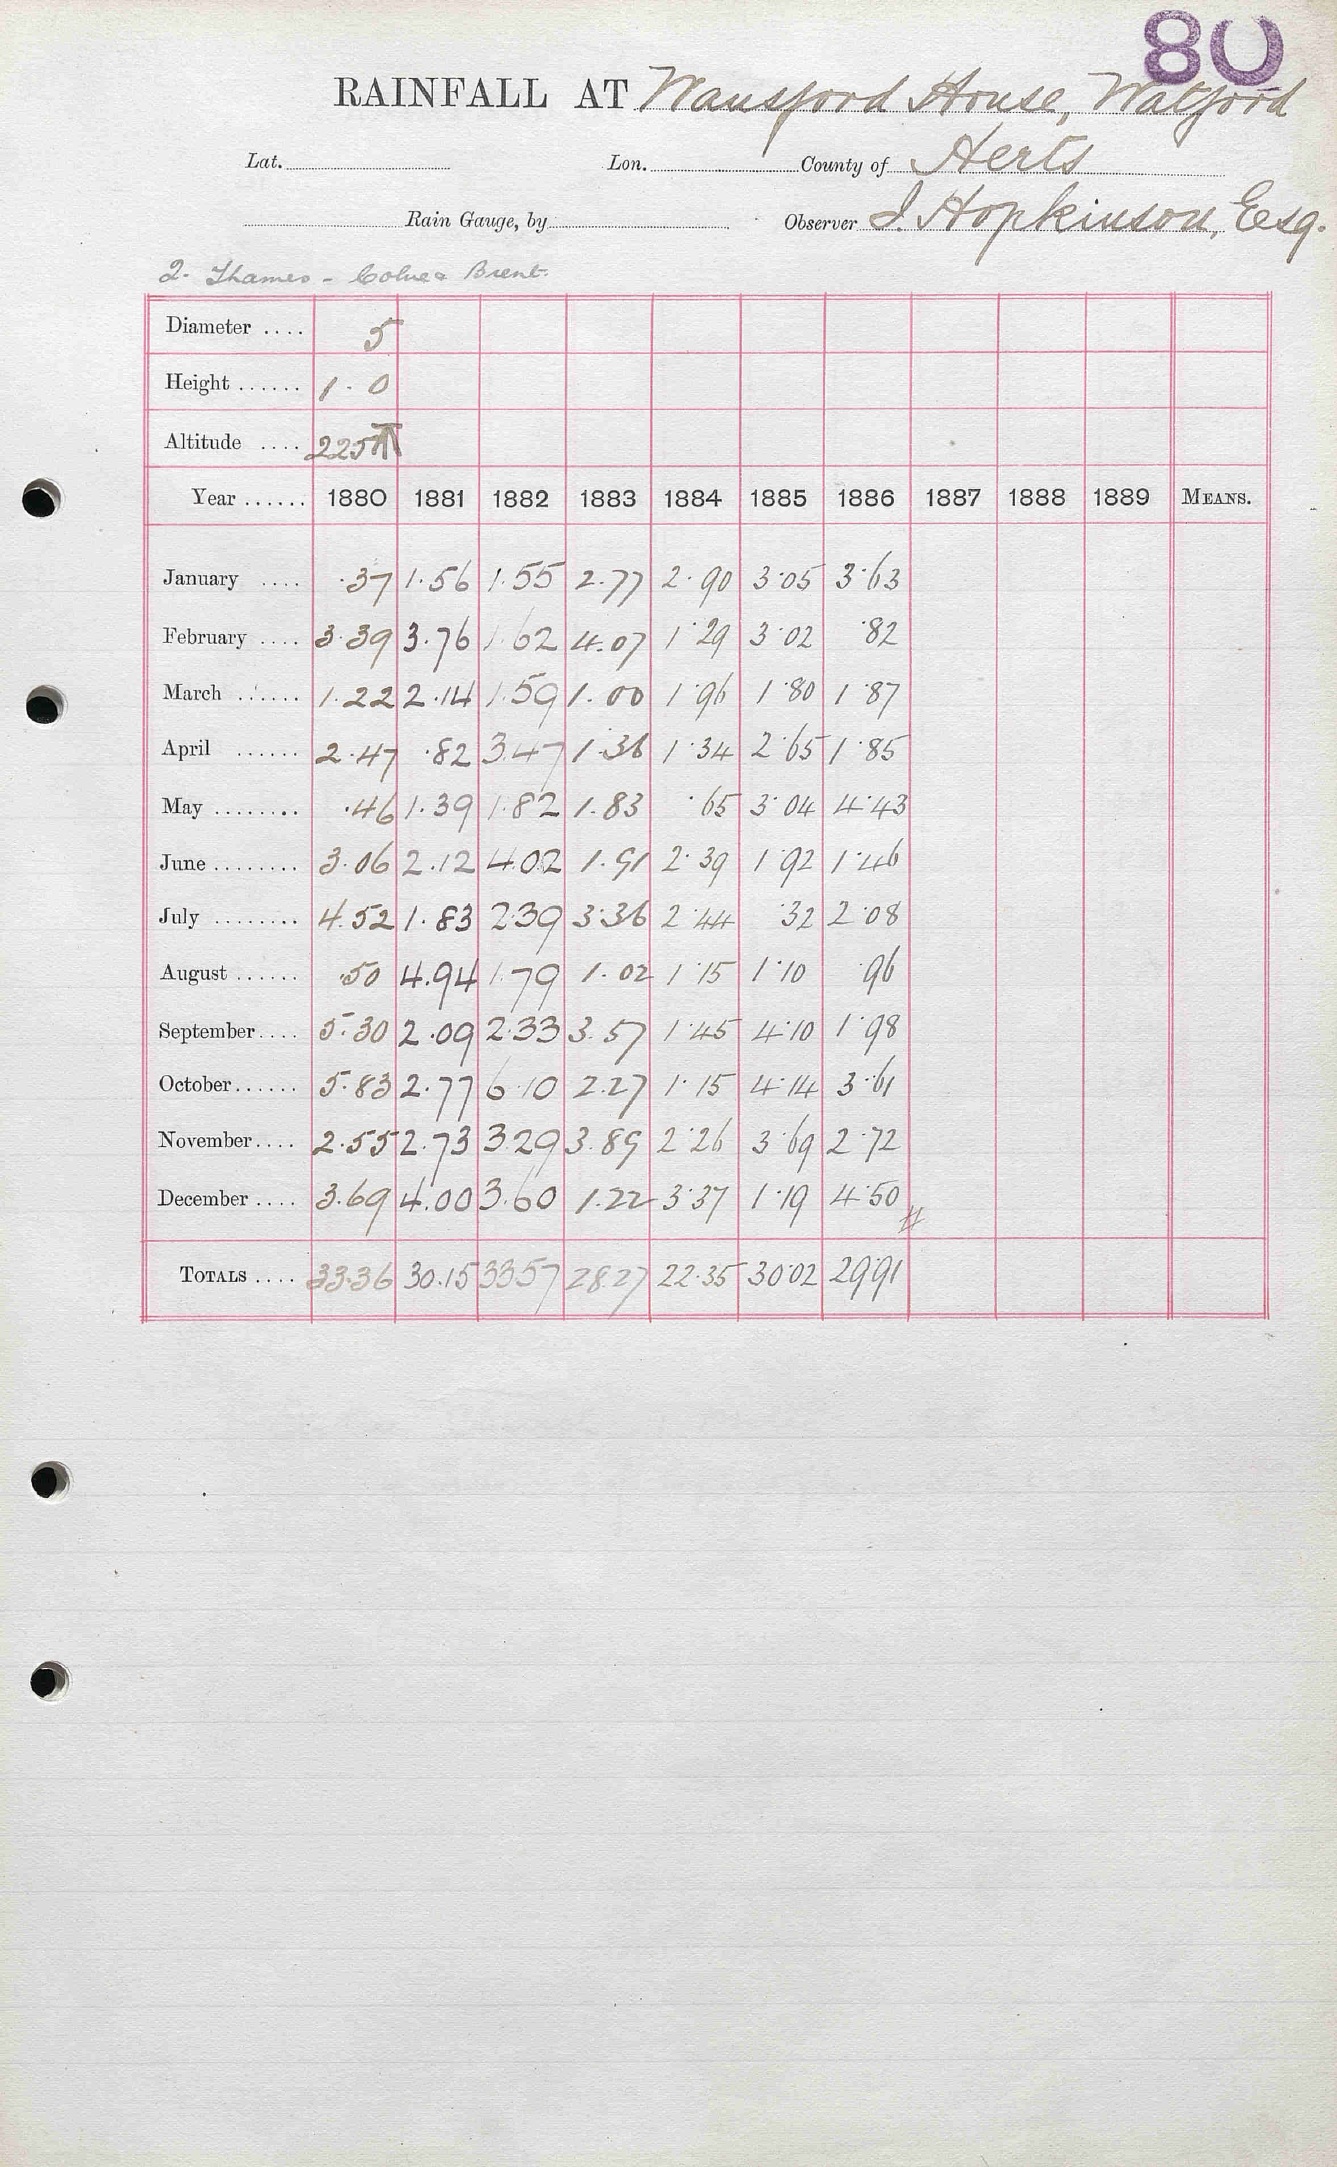 80
RAINFALL AT Wansford House, Watford
Lat. Lon. County of Herts
Rain Gauge, by Observer J. Hopkinson, Esq.
2. Thames - Colne & Brent.
Diameter .... 5
Height ...... 1 - 0
Altitude .... 225 T
Year ...... 1880 1881 1882 1883 1884 1885 1886 1887 1888 1889 MEANS.
January .... .37 1.56 1.55 2.77 2.90 3.05 3.63
February .... 3.39 3.76 1.62 4.07 1.29 3.02 .82
March ...... 1.22 2.14 1.59 1.00 1.96 1.80 1.87
April ...... 2.47 .82 3.47 1.36 1.34 2.65 1.85
May ........ .46 1.39 1.82 1.83 .65 3.04 4.43
June ........ 3.06 2.12 4.02 1.91 2.39 1.92 1.46
July ........ 4.52 1.83 2.39 3.36 2.44 .32 2.08
August ...... .50 4.94 1.79 1.02 1.15 1.10 .96
September .... 5.30 2.09 2.33 3.57 1.45 4.10 1.98
October ...... 5.83 2.77 6.10 2.27 1.15 4.14 3.61
November .... 2.55 2.73 3.29 3.89 2.26 3.69 2.72
December .... 3.69 4.00 3.60 1.22 3.37 1.19 4.50
TOTALS .... 33.36 30.15 33.57 28.27 22.35 30.02 29.91